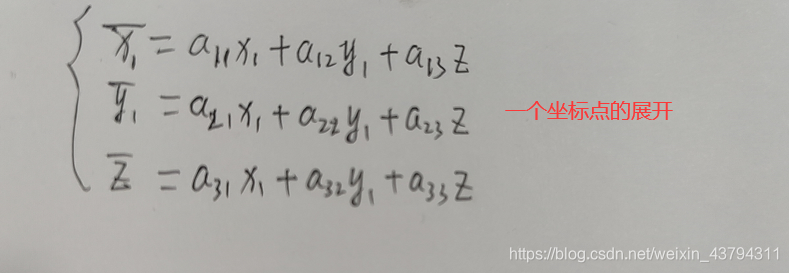 x̅₁ = a₁₁x₁ + a₁₂y₁ + a₁₃z
y̅₁ = a₂₁x₁ + a₂₂y₁ + a₂₃z
一个坐标点的展开
z̅ = a₃₁x₁ + a₃₂y₁ + a₃₃z
https://blog.csdn.net/weixin_43794311